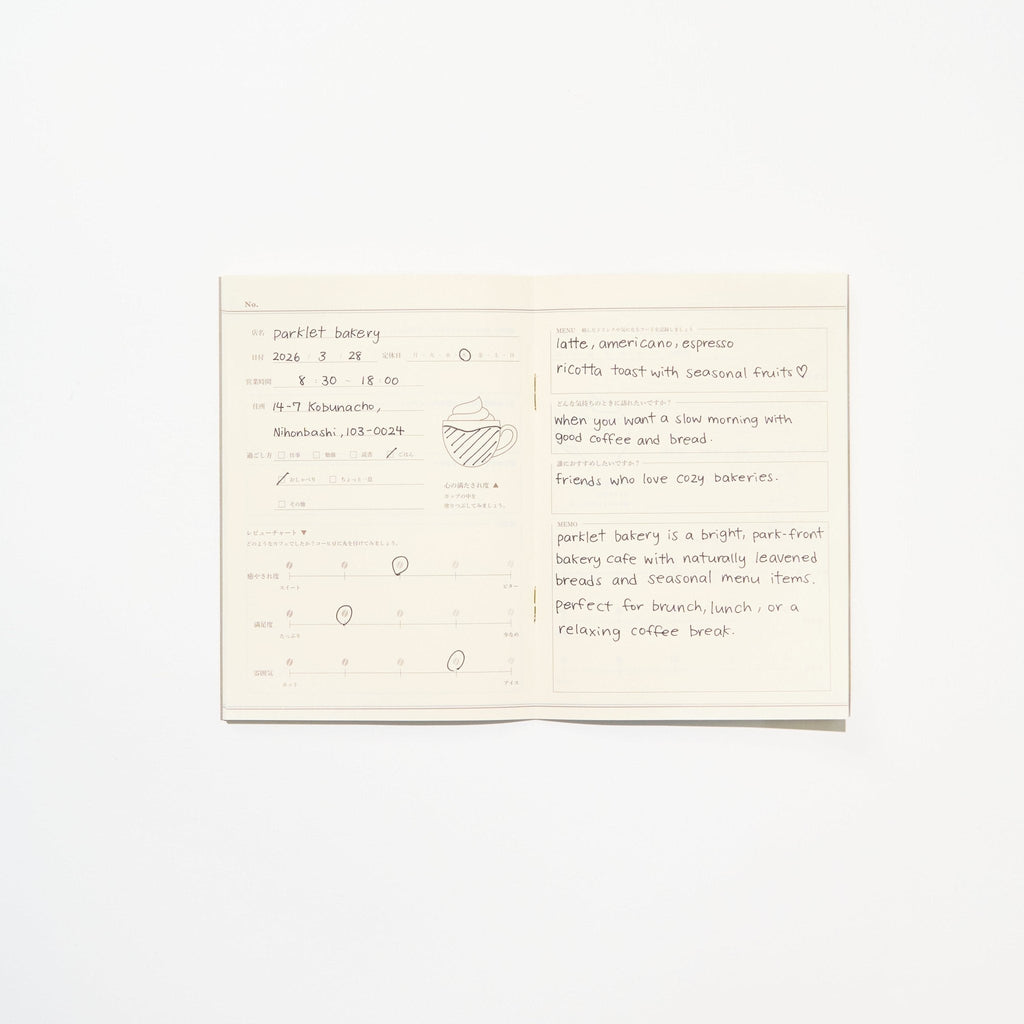 No.
店名 parklet bakery
日付 2026 / 3 / 28 定休日 月・火・水・木・金・土・日
営業時間 8 : 30 ~ 18 : 00
住所 14-7 Kobunacho,
Nihonbashi, 103-0024
過ごし方 仕事 勉強 読書 ごはん
おしゃべり ちょっと一息
その他
心の満たされ度 ▲
カップの中を
塗りつぶしてみましょう。
レビューチャート ▼
どのようなカフェでしたか?コーヒー豆に丸を付けてみましょう。
癒やされ度
スイート ビター
満足度
たっぷり 少なめ
雰囲気
ホット アイス
MENU
latte, americano, espresso
ricotta toast with seasonal fruits♡
どんな気持ちのときに訪れたいですか?
when you want a slow morning with
good coffee and bread.
誰におすすめしたいですか?
friends who love cozy bakeries.
MEMO
parklet bakery is a bright, park-front
bakery cafe with naturally leavened
breads and seasonal menu items.
perfect for brunch, lunch, or a
relaxing coffee break.